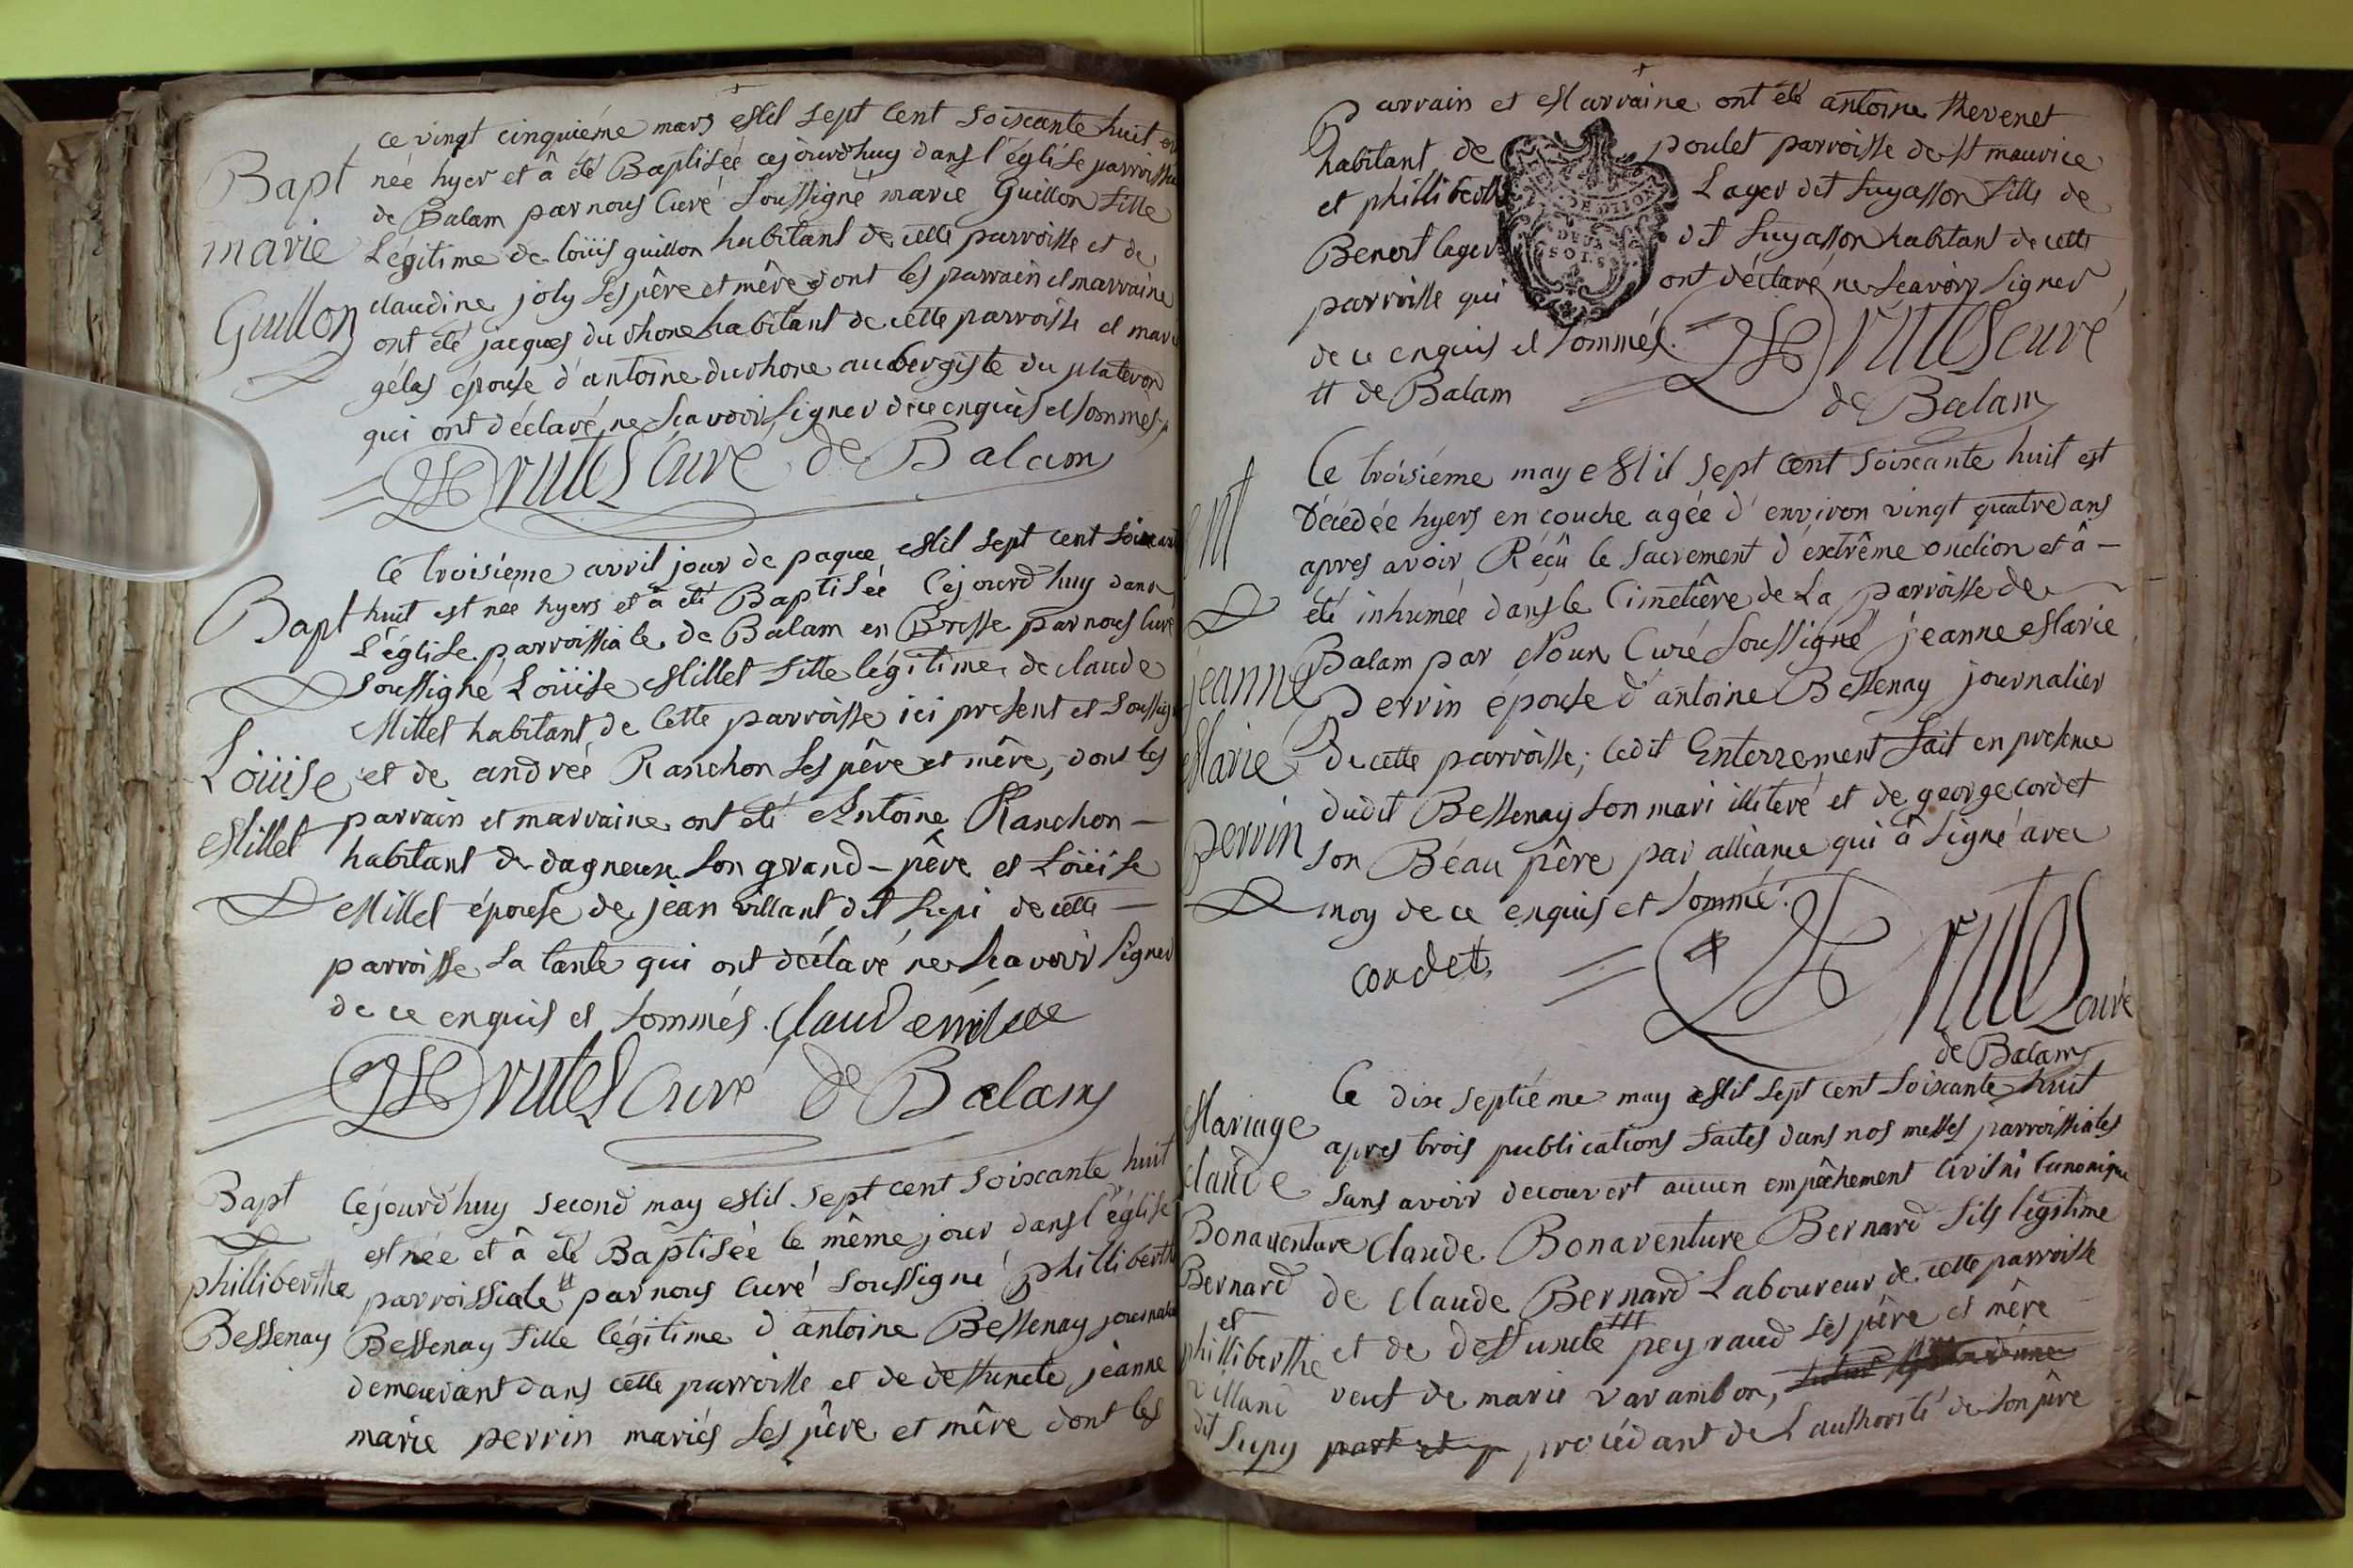 ce vingt cinquiéme mars Mil sept cent soixante huit
Bapt née hyer et â été Baptisée cejourd'huy dans l'église
de Balam par nous Curé soussigné marie Guillon fille
marie Légitime de loüis guillon habitant de cette parroisse et de
Guillon claudine joly ses pêre et mêre dont les parrain et marraine
ont été jacques du rhone habitant de cette parroisse et
gélas épouse d'antoine du rhone aubergiste du
qui ont déclaré ne scavoir signer de ce enquis et sommés
Drutel Curé de Balam
Ce troisiéme avril jour de paque Mil sept cent
Bapt huit est née hyers et â été Baptisée Cejourd'huy dans
L'église parroissiale de Balam en Bresse par nous Curé
soussigné Loüise Millet fille légitime de claude
Millet habitant de Cette parroisse ici present et
Loüise et de andrée Ranchon ses pêre et mêre, dont les
parrain et marraine ont été Antoine Ranchon —
Millet habitant de dagneux son grand-pêre et Loüise
Millet épouse de jean villant dit Supi de cette —
parroisse sa tante qui ont déclaré ne scavoir signer
de ce enquis et sommés.
Drutel Curé de Balam
Bapt Cejourd'huy second may Mil sept cent soixante huit
est née et â été Baptisée le même jour dans l'église
philliberthe parroissiale tt par nous Curé soussigné
Bessenay Bessenay fille légitime d'antoine Bessenay
demeurant dans cette parroisse et de deffuncte jeanne
marie perrin mariés ses pêre et mêre dont les
Parrain et Marraine ont été antoine thevenet
habitant de poulet parroisse de st maurice
et Lager dit Suyasson fille de
DE DIJON
DEUX
SOLS
Benoit lager dit Suyasson habitant de cette
parroisse qui ont déclaré ne scavoir signer
de ce enquis et sommés. Drutel curé
tt de Balam de Balam
Ce troisiéme may Mil sept cent soixante huit est
ent Décedée hyers en couche agée d'environ vingt quatre ans
apres avoir Réçû le sacrement d'extrême onction et â —
été inhumée dans le Cimetiêre de La parroisse de
jeanne Balam par Nous Curé soussigné jeanne Marie
Perrin épouse d'antoine Bessenay journalier
Marie De cette parroisse; ledit Enterrement fait en presence
dudit Bessenay son mari illiteré et de george cordet
perrin son Béau pêre par alliance qui â signé avec
moy de ce enquis et sommé.
cordet Drutel curé
de Balam
Ce dix septiéme may Mil sept cent soixante huit
Mariage apres trois publications faites dans nos messes parroissiales
claude sans avoir decouvert aucun empêchement Civil ni Canonique
Bonaventure Claude Bonaventure Bernard fils légitime
Bernard de claude Bernard Laboureur de cette parroisse
et
philliberthe et de deffuncte ttt peyraud ses pêre et mêre
villand veuf de marie varambon,
dit Supy part et p procédant de L'authorité de son pêre